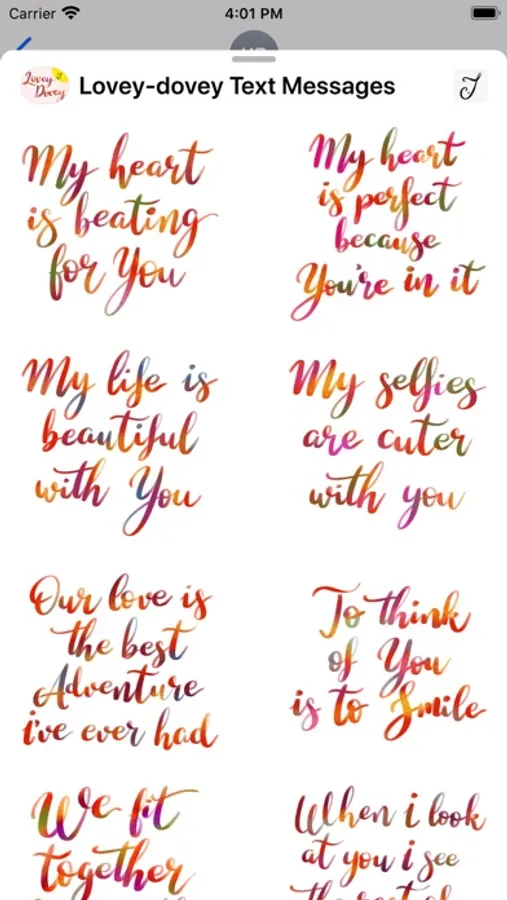 Carrier
4:01 PM
Lovey
Dovey
Lovey-dovey Text Messages
My heart
is beating
for You
My heart
is perfect
because
You're in it
My life is
beautiful
with You
My selfies
are cuter
with you
Our love is
the best
Adventure
i've ever had
To think
of You
is to Smile
We fit
together
When i look
at you i see
the rest of